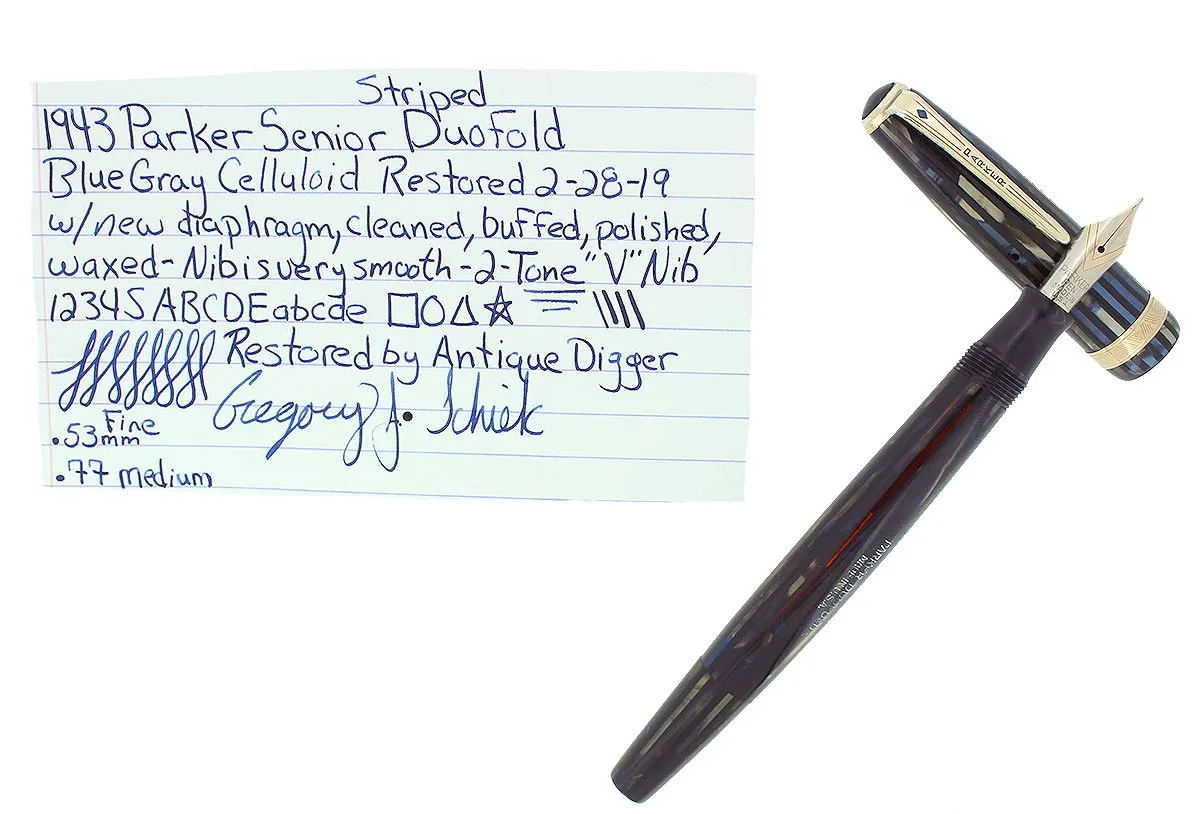 Striped
1943 Parker Senior Duofold
Blue Gray Celluloid Restored 2-28-19
w/new diaphragm, cleaned, buffed, polished,
waxed- Nib is very smooth-2-Tone "V" Nib
12345 ABCDE abcde
Restored by Antique Digger
Gregory J. Schiek
Fine
.53mm
.77 medium
PARKER
PARKER DUOFOLD
MADE IN U.S.A.